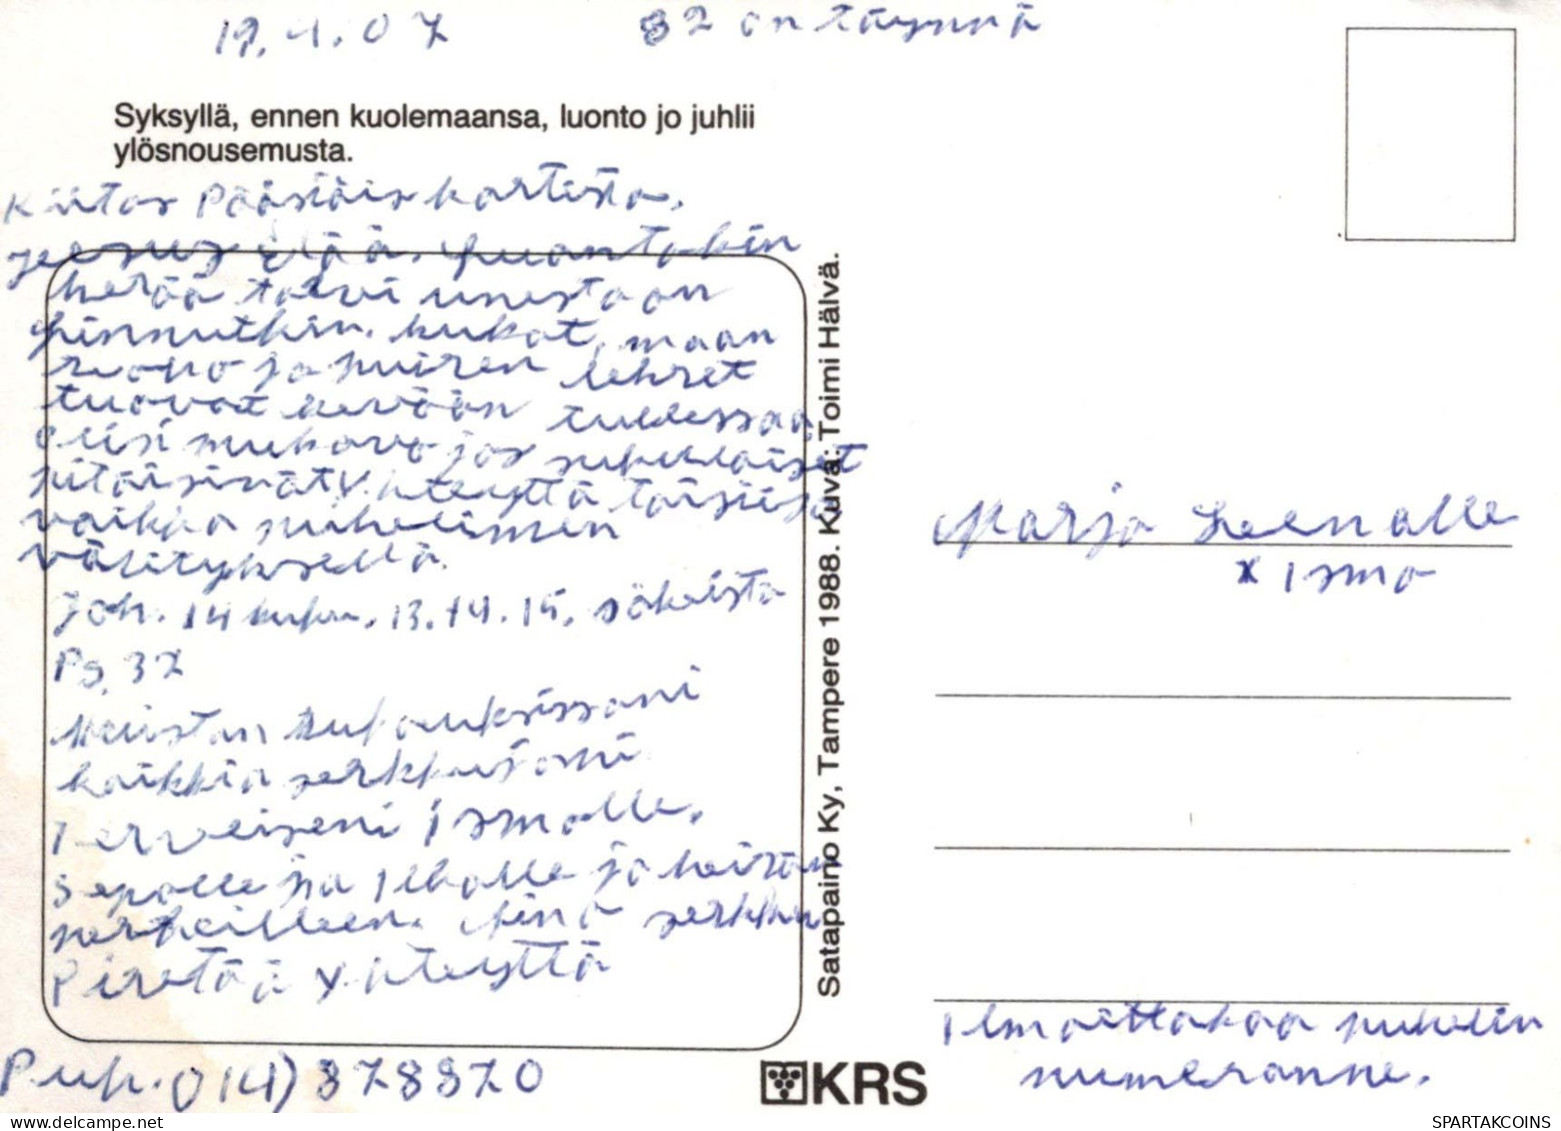 19.4.07
82 on täynnä
Syksyllä, ennen kuolemaansa, luonto jo juhlii
ylösnousemusta.
Kiitos Pääsiäiskortista.
Jeesus Elää. Luontokin
herää talvi unestaan
linnutkin. kukat, maan
ruoho ja puiren lehret
tuovat kevään tullessaan
olisi mukava jos sukulaiset
pitäisivät yhteyttä toisiinsa
vaikka puhelimen
välityksellä.
Joh. 14 luku. 13.14.15. säkeistö
Ps. 37
Muistan rukouksissani
kaikkia serkkujani
Terveiseni Ismolle.
Sepolle ja Ilkalle ja heirän
perheilleen. Sinä serkku
Piretää yhteyttä
Puh. 014) 378370
Satapaino Ky, Tampere 1988. Kuva: Toimi Hälvä.
KRS
Marja Leenalle
x Ismo
Ilmoittakaa puhelin
numeranne.
SPARTAKCOINS